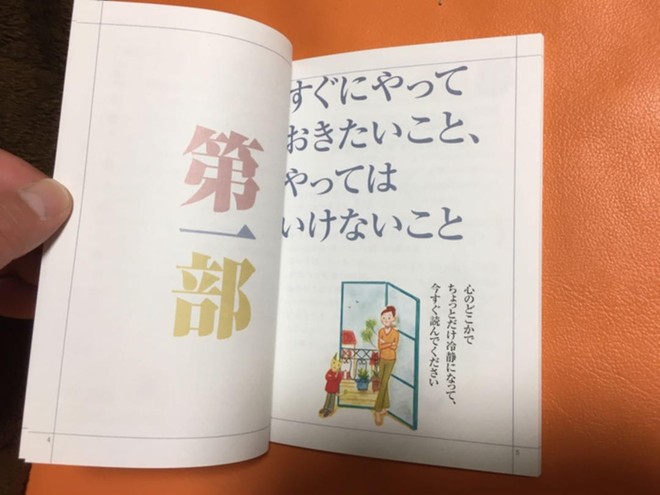 第一部
すぐにやって
おきたいこと、
やっては
いけないこと
心のどこかで
ちょっとだけ冷静になって、
今すぐ読んでください
4
5